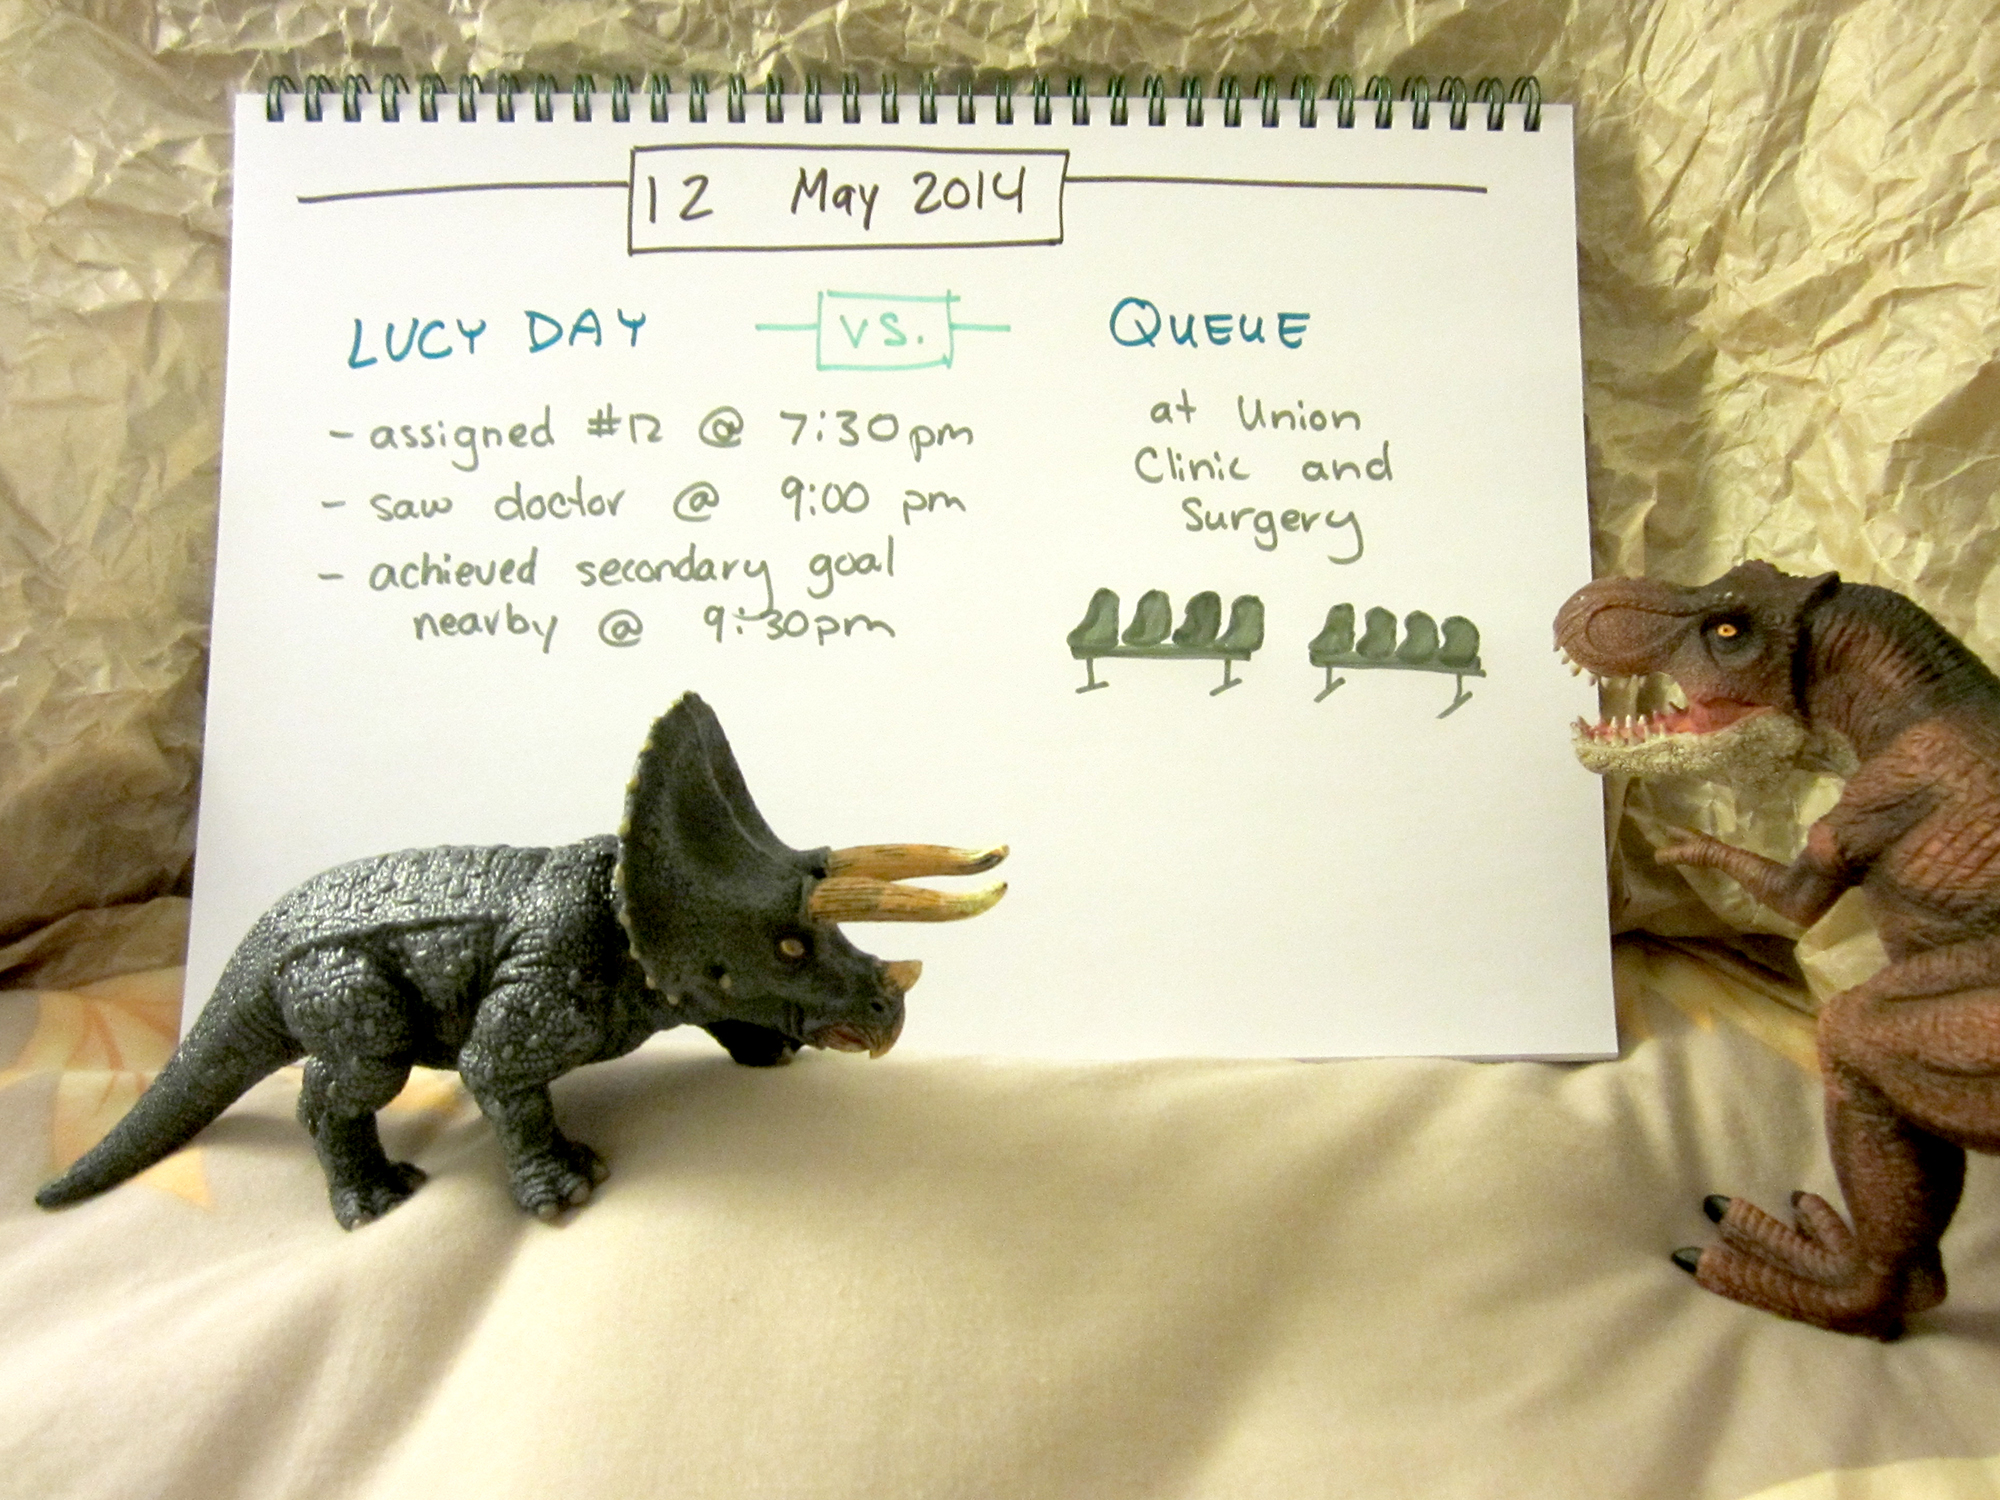 12 May 2014
LUCY DAY
VS.
QUEUE
- assigned #12 @ 7:30pm
- saw doctor @ 9:00 pm
- achieved secondary goal
nearby @ 9:30pm
at Union
Clinic and
Surgery